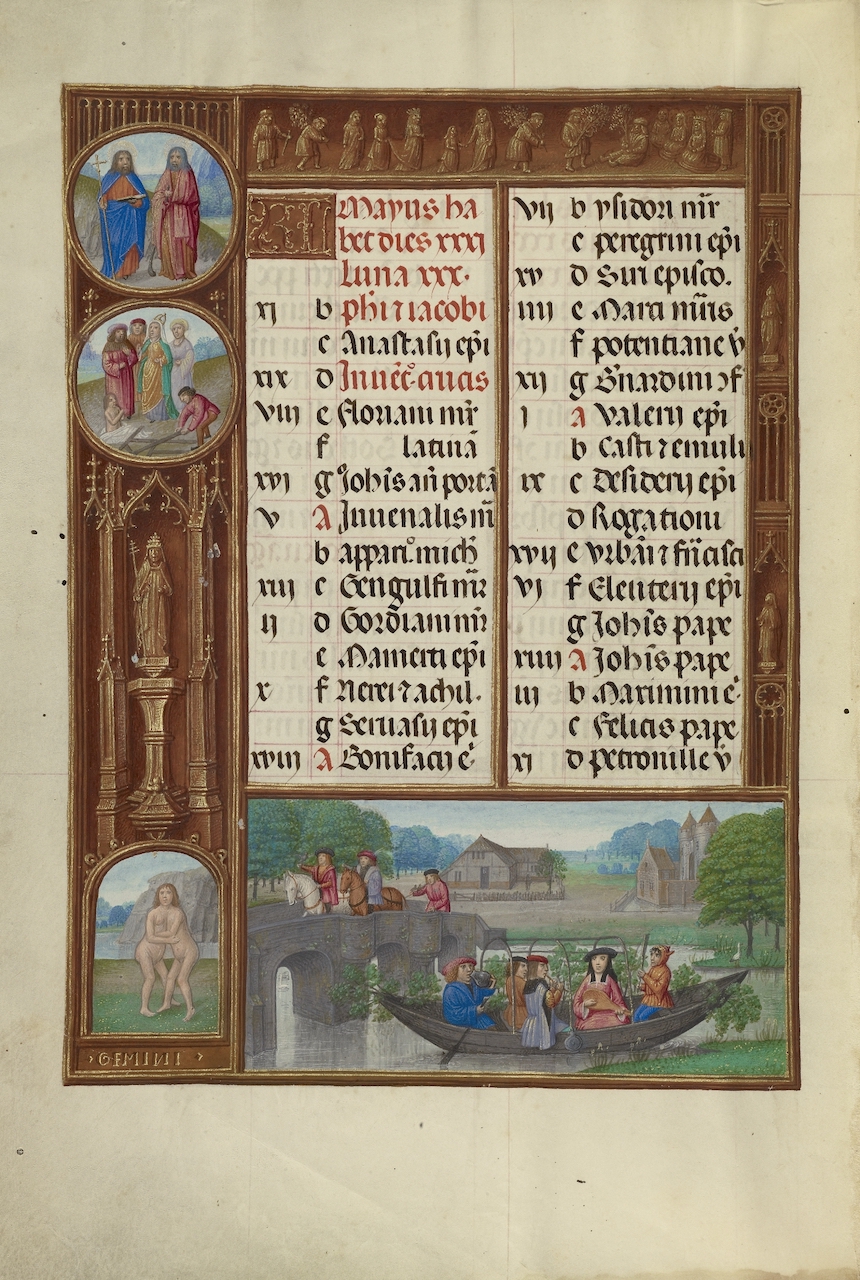 KL Mayus ha
bet dies xxxj
Luna xxx.
xj b phi ⁊ iacobi
c Anastasij epi
xix d Inuēc. crucis
viij e Floriani mr̄
f latinā
xvj g Joh̄is an̄ portā
v A Iuuenalis m̄
b appari. mich
xiij c Gengulfi mr̄
ij d Gordiani mr̄
e Mamerti epi
x f Nerei ⁊ achil.
g Seruasij epi
xviij A Bonifacij e
vij b ysidori mr̄
c peregrini epi
xv d Siri episco.
iiij e Marci mr̄is
f potentiane v
xij g B'nardini ɔf
j A Valerij epi
b Casti ⁊ emuli
ix c Desiderij epi
d Rogationi
xvij e vrbāi ⁊ fr̄icisci
vj f Eleuterij epi
g Joh̄is pape
xiiij A Joh̄is pape
iij b Maximini e
c Felicis pape
xj d petronille v
GEMINI